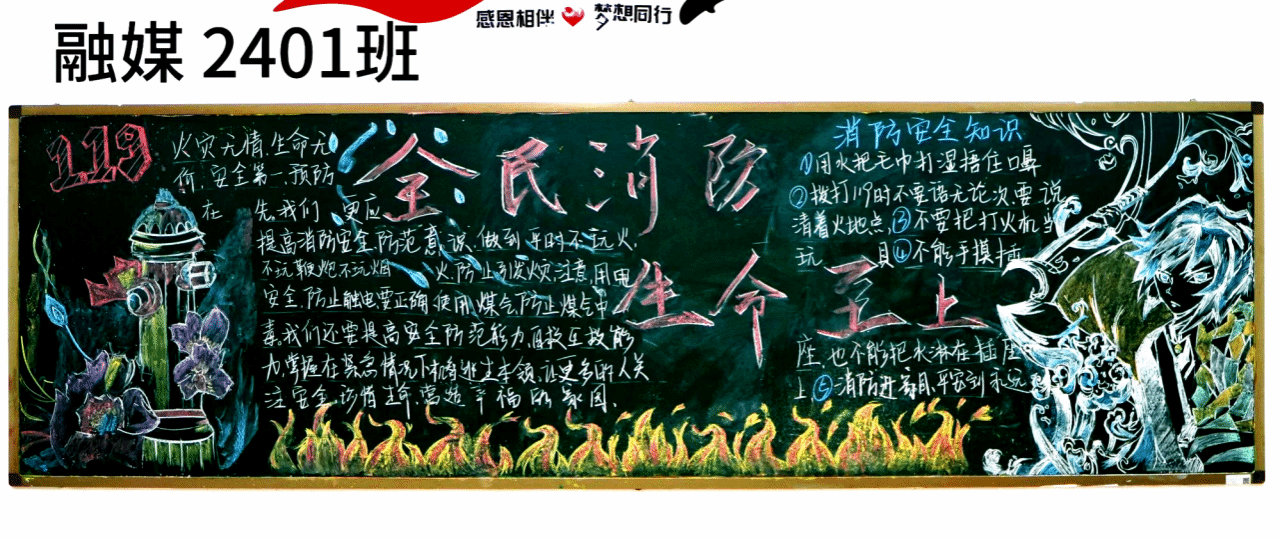 感恩相伴 梦想同行
融媒 2401班
119
全民消防
生命至上
火灾无情,生命无
价,安全第一,预防
在先,我们更应
提高消防安全防范意识,做到平时不玩火,
不玩鞭炮不玩烟火,防止引发火灾,注意用电
安全,防止触电要正确使用煤气,防止煤气中
毒,我们还要提高安全防范能力,自救互救能
力,掌握在紧急情况下的逃生本领,让更多的人关
注安全,珍惜生命,营造幸福的家园.
消防安全知识
①用水把毛巾打湿捂住口鼻
②拨打119时不要语无论次,要说
清着火地点,③不要把打火机当
玩具④不能手摸插
座,也不能把水淋在插座
上⑤消防进 ,平安到